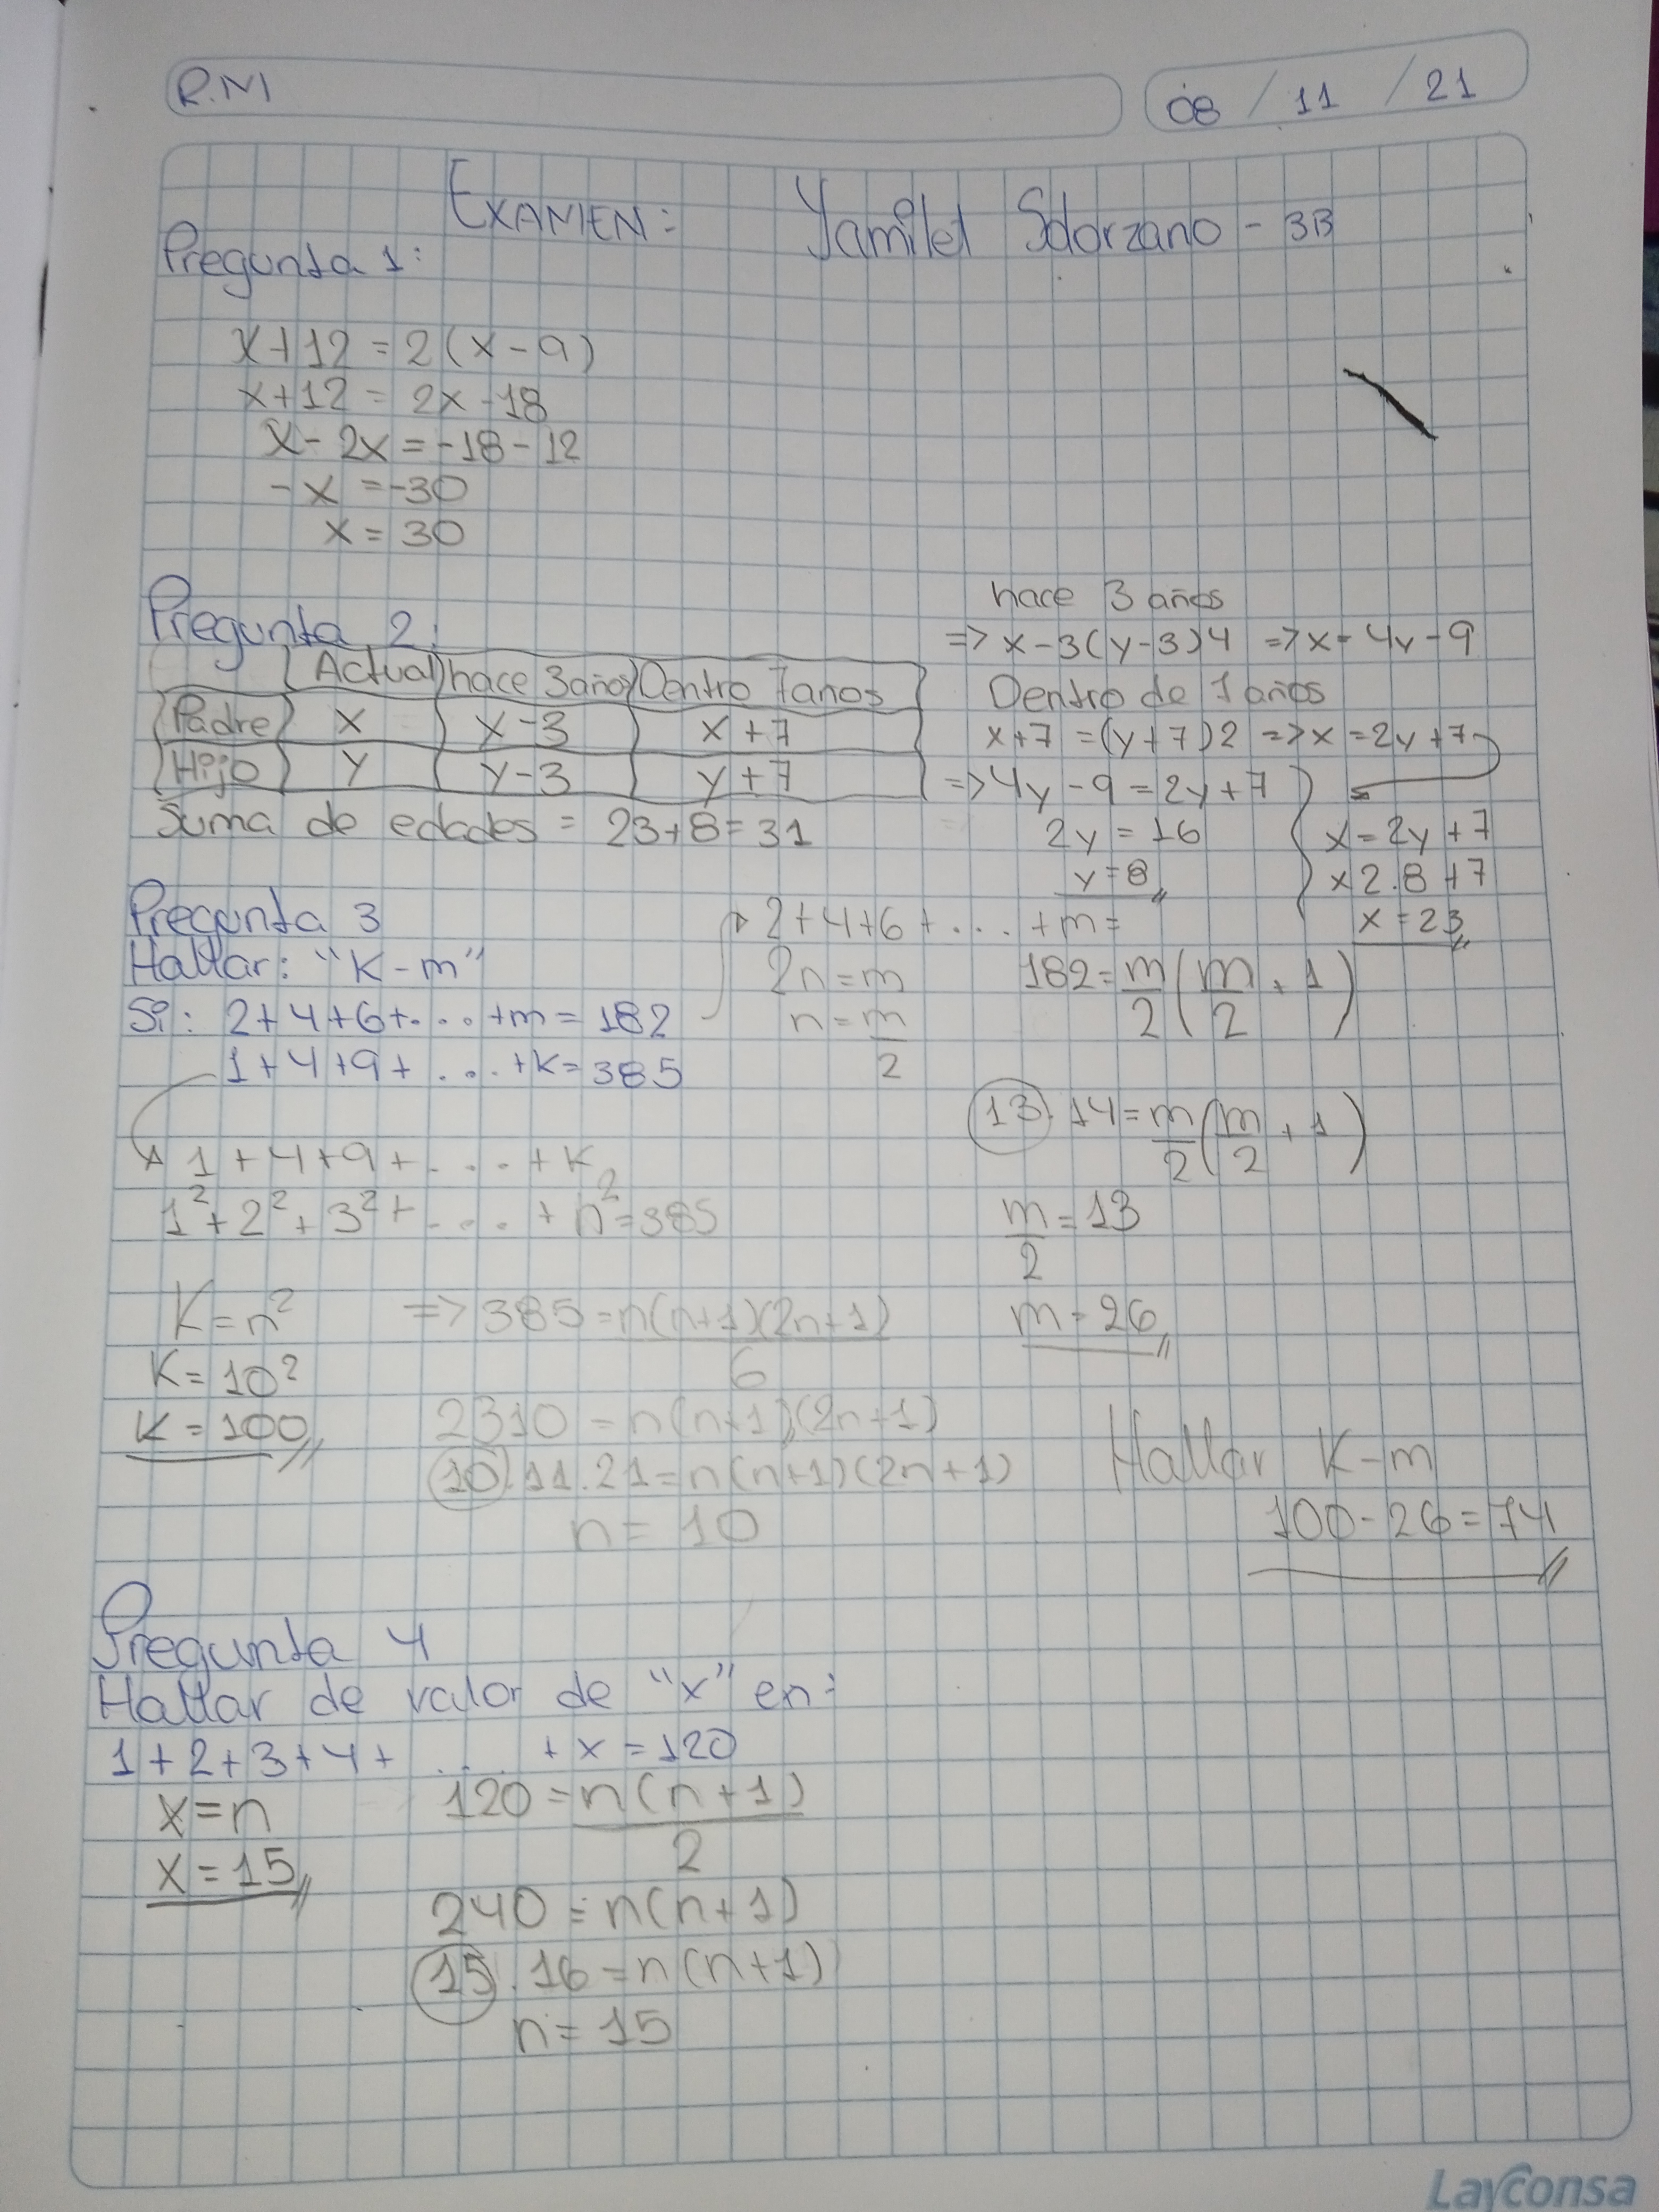 R.M
08 / 11 / 21
EXAMEN: Yamilet Solorzano - 3B
Pregunta 1:
x+12 = 2(x-9)
x+12 = 2x-18
x-2x = -18-12
-x = -30
x = 30
Pregunta 2:
Actual hace 3años Dentro 7anos
Padre x x-3 x+7
Hijo y y-3 y+7
Suma de edades = 23+8=31
hace 3 años
=> x-3(y-3)4 => x=4y-9
Dentro de 7 años
x+7 =(y+7)2 => x =2y+7
=> 4y-9=2y+7
2y = 16
y=8
x=2y+7
x2.8+7
x=23
Pregunta 3
Hallar: "K-m"
Si: 2+4+6+....+m=182
1+4+9+....+K=385
1+4+9+....+K
1²+2²+3²+....+n²=385
K=n²
K=10²
K=100
=> 385=n(n+1)(2n+1)
6
2310 = n(n+1)(2n+1)
10.11.21=n(n+1)(2n+1)
n = 10
2+4+6+....+m=
2n=m
n=m
2
182=m/2(m/2+1)
13.14=m/2(m/2+1)
m/2=13
m=26
Hallar K-m
100-26=74
Pregunta 4
Hallar de valor de "x" en:
1+2+3+4+....+x=120
x=n
x=15
120=n(n+1)
2
240=n(n+1)
15.16=n(n+1)
n=15
Layconsa